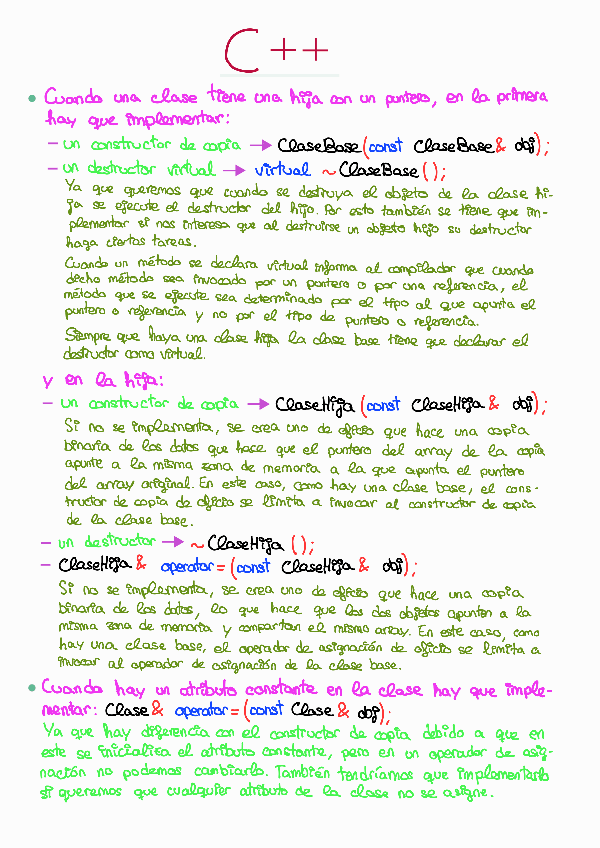 C++
• Cuando una clase tiene una hija con un puntero, en la primera
hay que implementar:
- un constructor de copia → ClaseBase(const ClaseBase& obj);
- un destructor virtual → virtual ~ClaseBase();
Ya que queremos que cuando se destruya el objeto de la clase hi-
ja se ejecute el destructor del hijo. Por esto también se tiene que im-
plementar si nos interesa que al destruirse un objeto hijo su destructor
haga ciertas tareas.
Cuando un método se declara virtual informa al compilador que cuando
dicho método sea invocado por un puntero o por una referencia, el
método que se ejecute sea determinado por el tipo al que apunta el
puntero o referencia y no por el tipo de puntero o referencia.
Siempre que haya una clase hija la clase base tiene que declarar el
destructor como virtual.
y en la hija:
- un constructor de copia → ClaseHija(const ClaseHija& obj);
Si no se implementa, se crea uno de oficio que hace una copia
binaria de los datos que hace que el puntero del array de la copia
apunte a la misma zona de memoria a la que apunta el puntero
del array original. En este caso, como hay una clase base, el cons-
tructor de copia de oficio se limita a invocar al constructor de copia
de la clase base.
- un destructor → ~ClaseHija();
- ClaseHija& operator=(const ClaseHija& obj);
Si no se implementa, se crea uno de oficio que hace una copia
binaria de los datos, lo que hace que los dos objetos apunten a la
misma zona de memoria y compartan el mismo array. En este caso, como
hay una clase base, el operador de asignación de oficio se limita a
invocar al operador de asignación de la clase base.
• Cuando hay un atributo constante en la clase hay que imple-
mentar: Clase& operator=(const Clase& obj);
Ya que hay diferencia con el constructor de copia debido a que en
este se inicializa el atributo constante, pero en un operador de asig-
nación no podemos cambiarlo. También tendríamos que implementarlo
si queremos que cualquier atributo de la clase no se asigne.